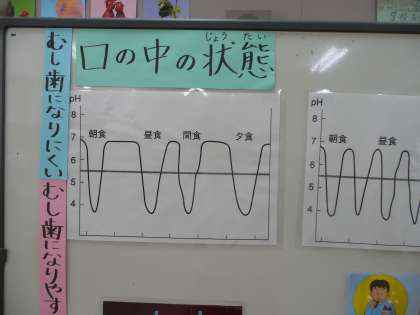 口の中の状態
じょうたい
むし歯になりにくい
むし歯になりやす
pH
8
7
6
5
4
朝食
昼食
間食
夕食
pH
8
7
6
5
4
朝食
昼食